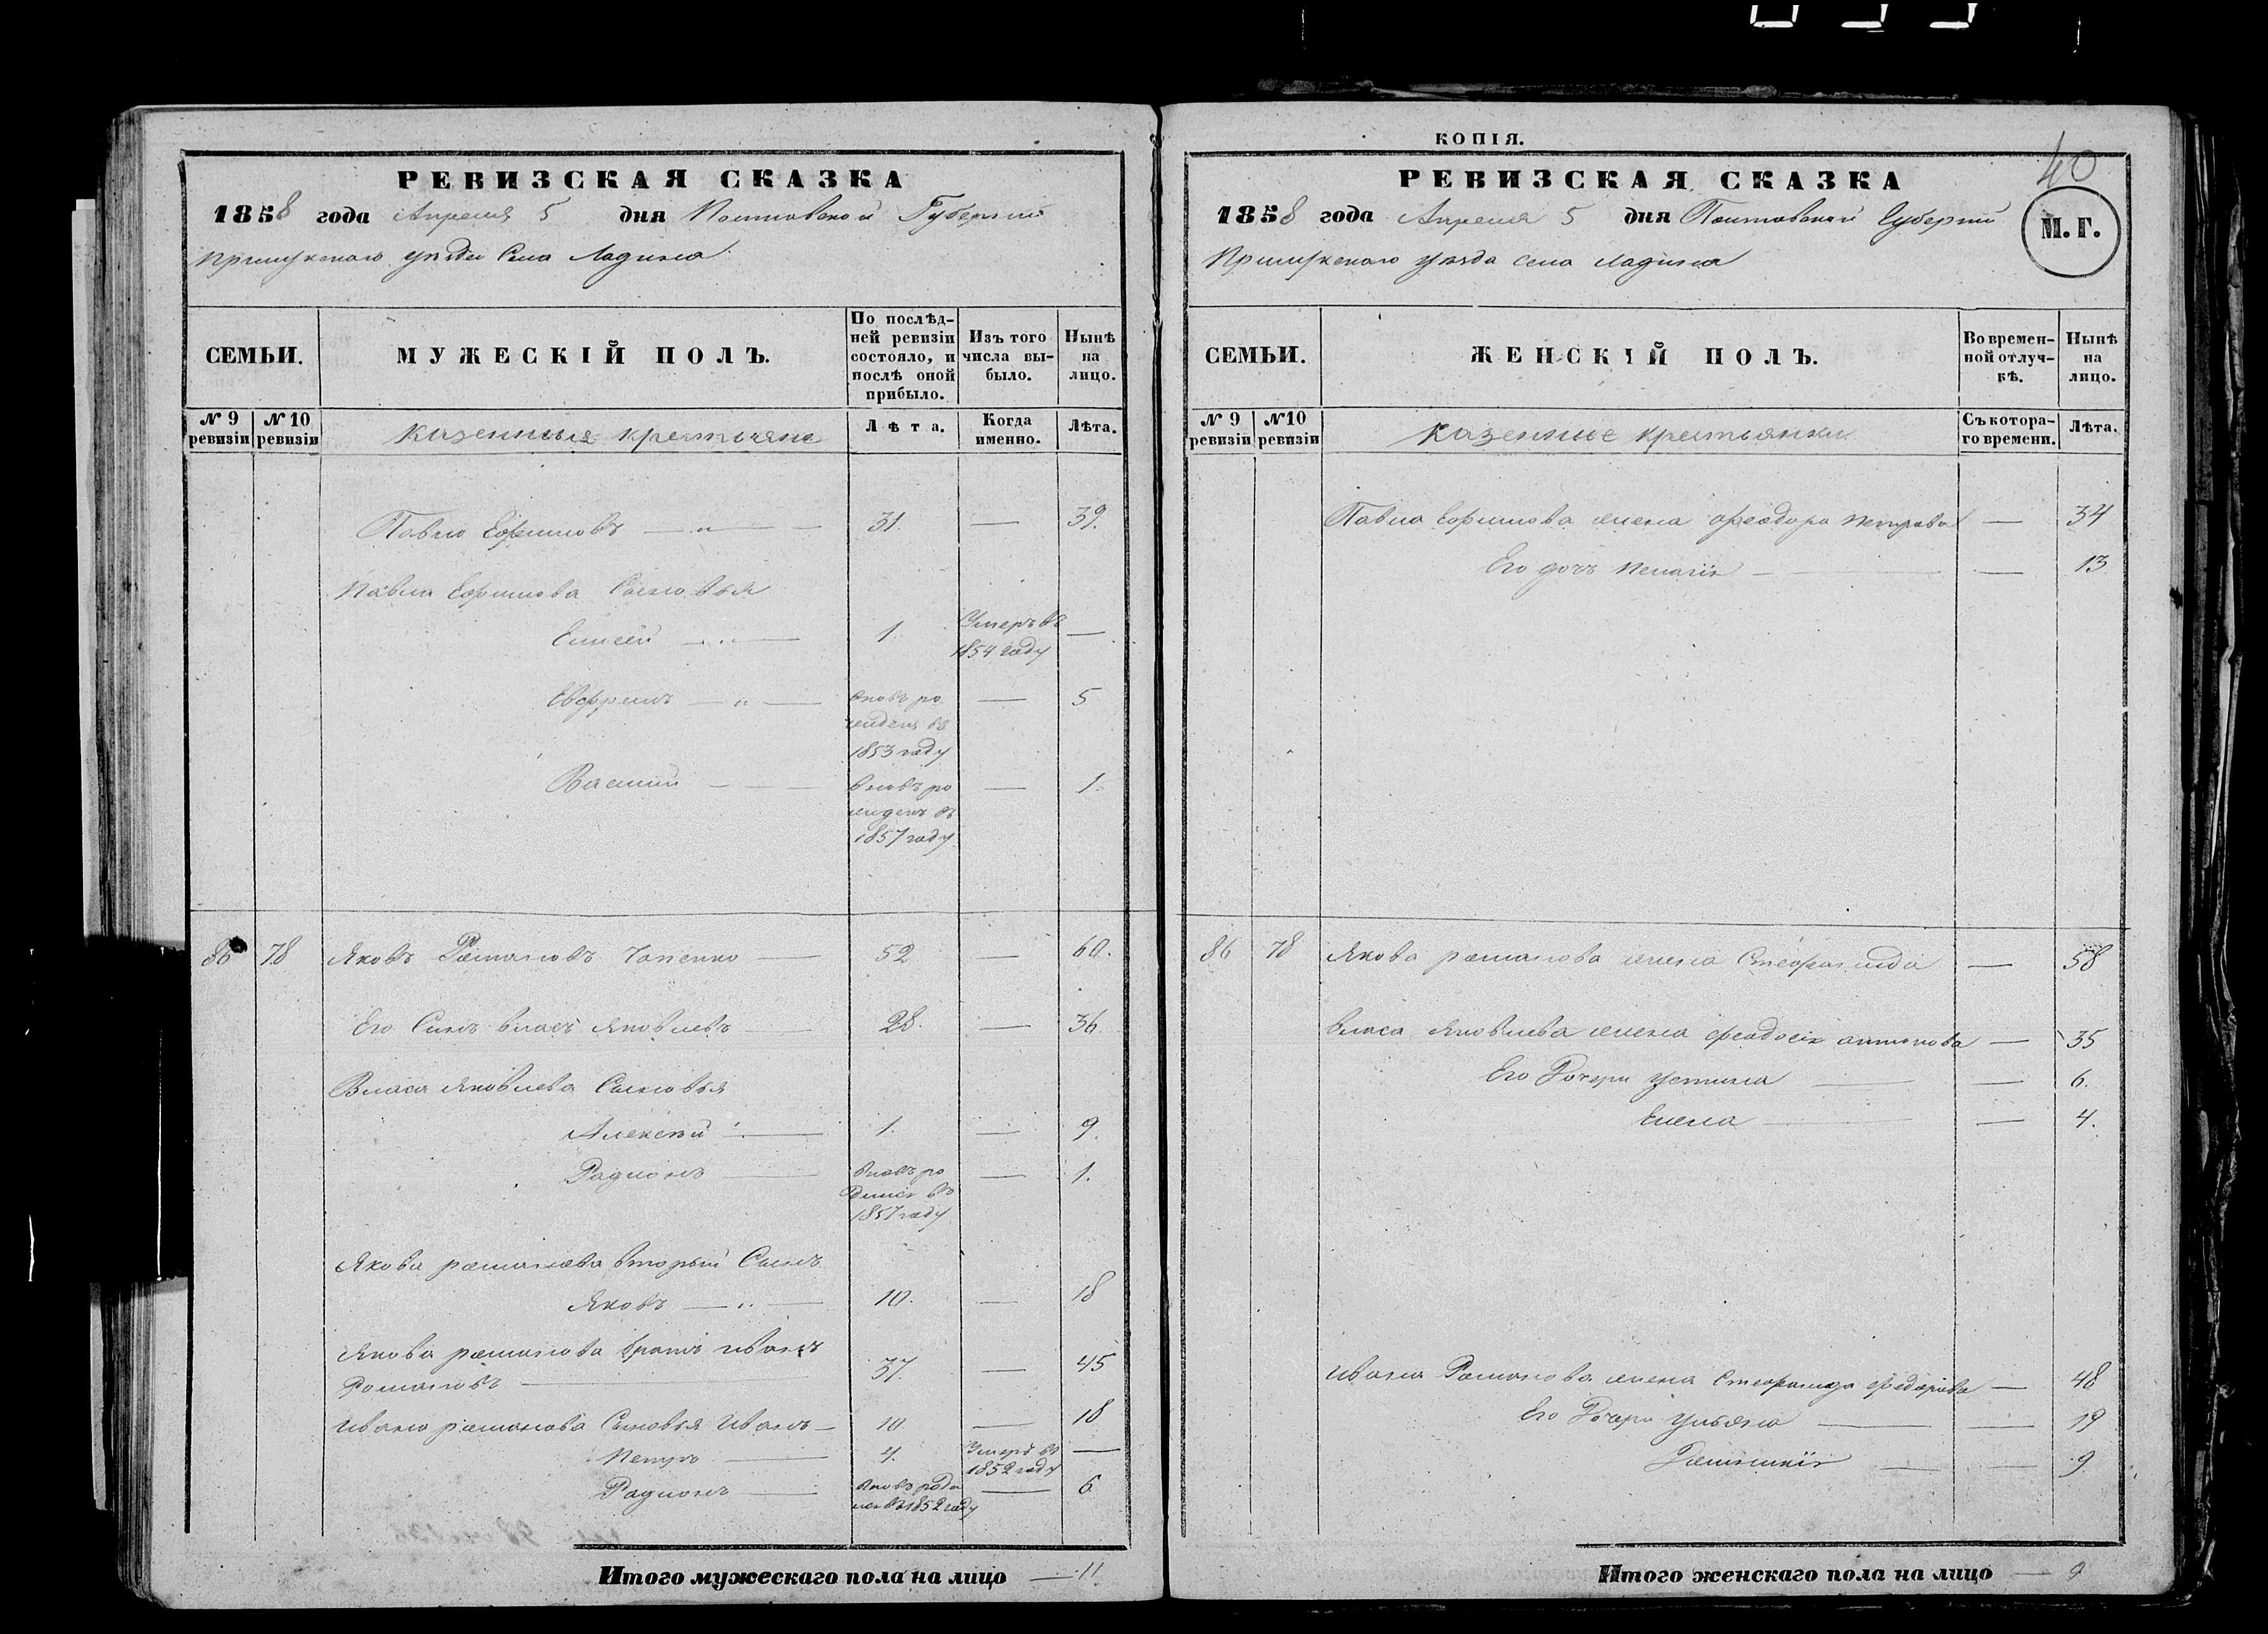 РЕВИЗСКАЯ СКАЗКА
1858 года Апреля 5 дня Полтавской Губернии
Прилукского уѣзда Села Ладина
СЕМЬИ.
МУЖЕСКІЙ ПОЛЪ.
По послѣд-
ней ревизіи
состояло, и
послѣ оной
прибыло.
Изъ того
числа вы-
было.
Нынѣ
на
лицо.
№ 9
ревизіи
№ 10
ревизіи
казенные крестьяне
Лѣта.
Когда
именно.
Лѣта.
Павло Ефимовъ — „ — 31. — 39.
Павла Ефимова Сыновья
Елисей — „ — 1. Умеръ въ —
1854 году
Евфремъ — „ — вновь ро — 5
жденъ въ
1853 году
Василий — вновь ро — 1.
жденъ въ
1857 году
86 78 Яковъ Романовъ — 52 — 60.
Его Сынъ власъ Яковлевъ — 28. — 36
Власа Яковлева Сыновья
Алексѣй — 1. — 9.
Радионъ — вновь ро — 1.
дился въ
1857 году
Якова романова вторый Сынъ
Яковъ — „ — 10. — 18
Якова романова братъ иванъ 37. — 45
Романовъ —
ивана романова Сыновья Иванъ — 10 — 18
Петръ — 4. Умеръ въ —
1852 году
Радионъ — вновь роди — 6
лся въ 1852 году
Итого мужескаго пола на лицо — 11
КОПІЯ.
40
РЕВИЗСКАЯ СКАЗКА
1858 года Апреля 5 дня Полтавской Губернии
М. Г.
Прилукского уѣзда села Ладина
СЕМЬИ.
ЖЕНСКІЙ ПОЛЪ.
Во времен-
ной отлуч-
кѣ.
Нынѣ
на
лицо.
№ 9
ревизіи
№ 10
ревизіи
казенные крестьянки
Съ котора-
го времени.
Лѣта.
Павла Ефимова жена феодора петрова — 34
Его дочь Пелагія — — 13
86 78 Якова романова жена Стефанида — 58
власа Яковлева жена феодосія антонова — 35
Его Дочери устина — — 6.
Елена — — 4.
ивана Романова жена Стефанида федорова — 48
Его Дочери ульяна — — 19
— — 9
Итого женскаго пола на лицо — 9